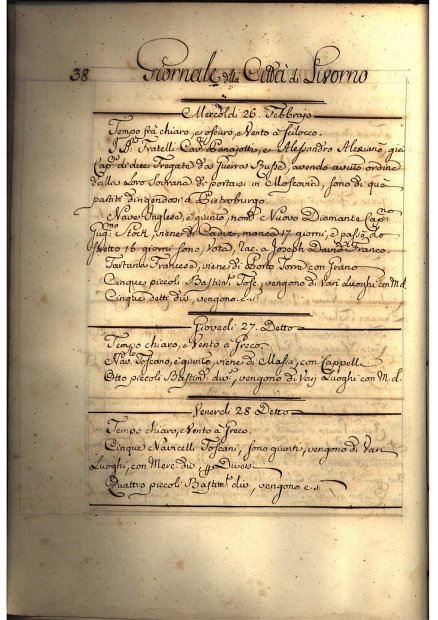 38 Giornale della Città di Livorno
Mercoldì 26. Febbrajo
Tempo frà chiaro, e oscuro, Vento à Scilocco.
I Fratelli Cavi. Panajotti, e Alessandro Alexiano, già
Cap. di due Fregate da Guerra Russe, avendo avuto ordine
dalla loro Sovrana di portarsi in Moscovia, sono di quà
partiti dirigendosi à Pietroburgo.
Nave Inglese, è giunto, nom. Nuovo Diamante Cap.no
Gug.mo Stork, viene di Cadiz, manca 17 giorni, e passò lo
stretto 16 giorni sono, Vota, Rac. a Joseph David Franco
Tartana Francese, viene di Porto Torre con Grano
Cinque piccoli Bastim. Tosc., vengono di Vari Luoghi con M. d.
Cinque detti div., vengono c. s.
Giovedì 27. Detto
Tempo chiaro, e Vento à Greco.
Nav.lo Toscano, è giunto, viene di Massa, con Cappelli
Otto piccoli Bastim. div., vengono di Varj Luoghi con M. d.
Venerdì 28 Detto
Tempo chiaro, e Vento à Greco.
Cinque Navicelli Toscani, sono giunti, vengono di Vari
Luoghi, con Merc. div. Diversi
Quattro piccoli Bastim. div., vengono c. s.